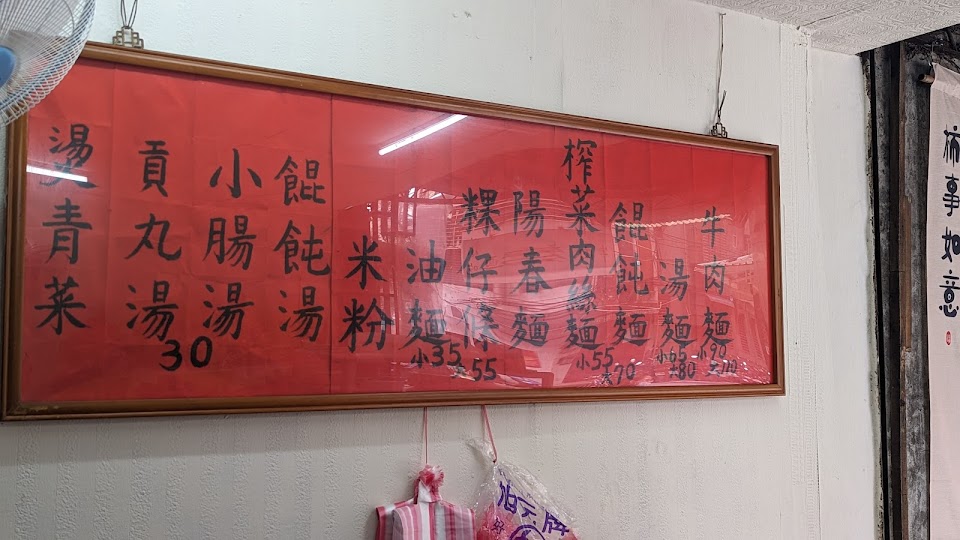 牛肉麵
小90
大110
湯麵
小65
大80
餛飩麵
榨菜肉絲麵
小55
大70
陽春麵
粿仔條
油麵
米粉
小35
大55
餛飩湯
小腸湯
貢丸湯
30
燙青菜
事如意
牌